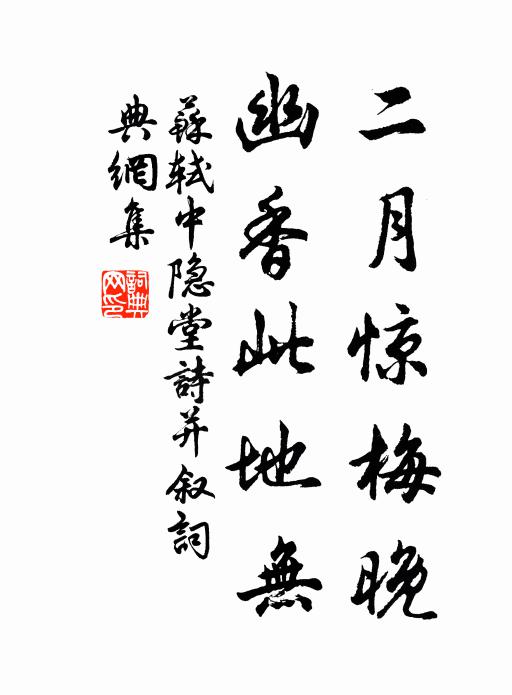 二月惊梅晚
幽香此地無
蘇軾中隐堂詩并叙詞
典網集
詞典网印